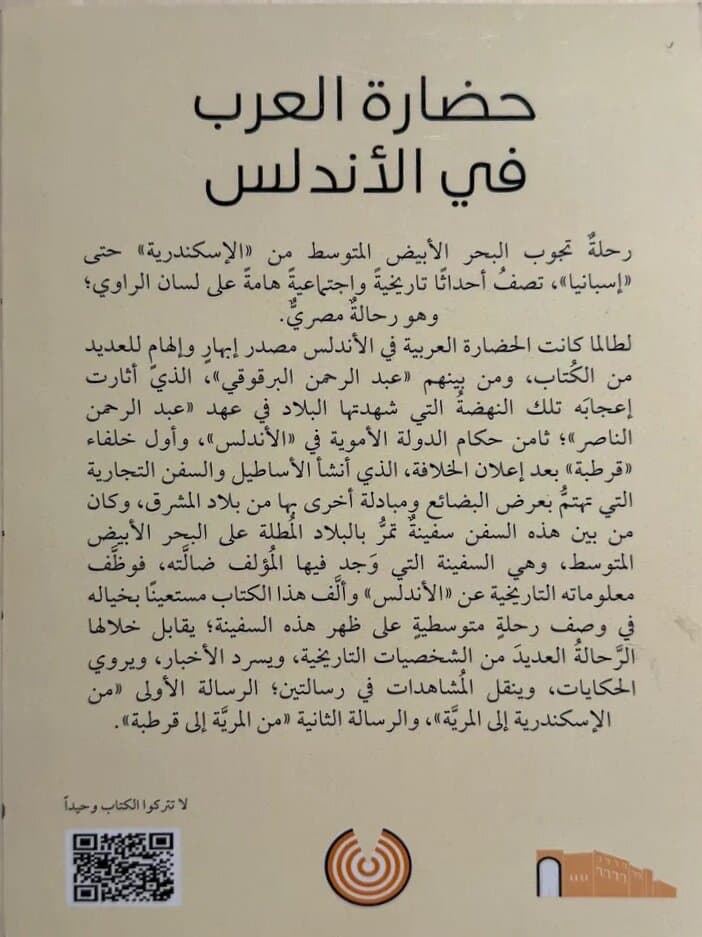 حضارة العرب
في الأندلس
رحلةٌ تجوب البحر الأبيض المتوسط من «الإسكندرية» حتى
«إسبانيا»، تصفُ أحداثًا تاريخيةً واجتماعيةً هامةً على لسان الراوي؛
وهو رحالةٌ مصريٌّ.
لطالما كانت الحضارة العربية في الأندلس مصدر إبهارٍ وإلهامٍ للعديد
من الكُتاب، ومن بينهم «عبد الرحمن البرقوقي»، الذي أثارت
إعجابَه تلك النهضةُ التي شهدتها البلاد في عهد «عبد الرحمن
الناصر»؛ ثامن حكام الدولة الأموية في «الأندلس»، وأول خلفاء
«قرطبة» بعد إعلان الخلافة، الذي أنشأ الأساطيل والسفن التجارية
التي تهتمُّ بعرض البضائع ومبادلة أخرى بها من بلاد المشرق، وكان
من بين هذه السفن سفينةٌ تمرُّ بالبلاد المُطلة على البحر الأبيض
المتوسط، وهي السفينة التي وَجد فيها المُؤلف ضالَّته، فوظَّف
معلوماته التاريخية عن «الأندلس» وألَّف هذا الكتاب مستعينًا بخياله
في وصف رحلةٍ متوسطيةٍ على ظهر هذه السفينة؛ يقابل خلالها
الرَّحالةُ العديدَ من الشخصيات التاريخية، ويسرد الأخبار، ويروي
الحكايات، وينقل المُشاهدات في رسالتين؛ الرسالة الأولى «من
الإسكندرية إلى المريَّة»، والرسالة الثانية «من المريَّة إلى قرطبة».
لا تتركوا الكتاب وحيداً